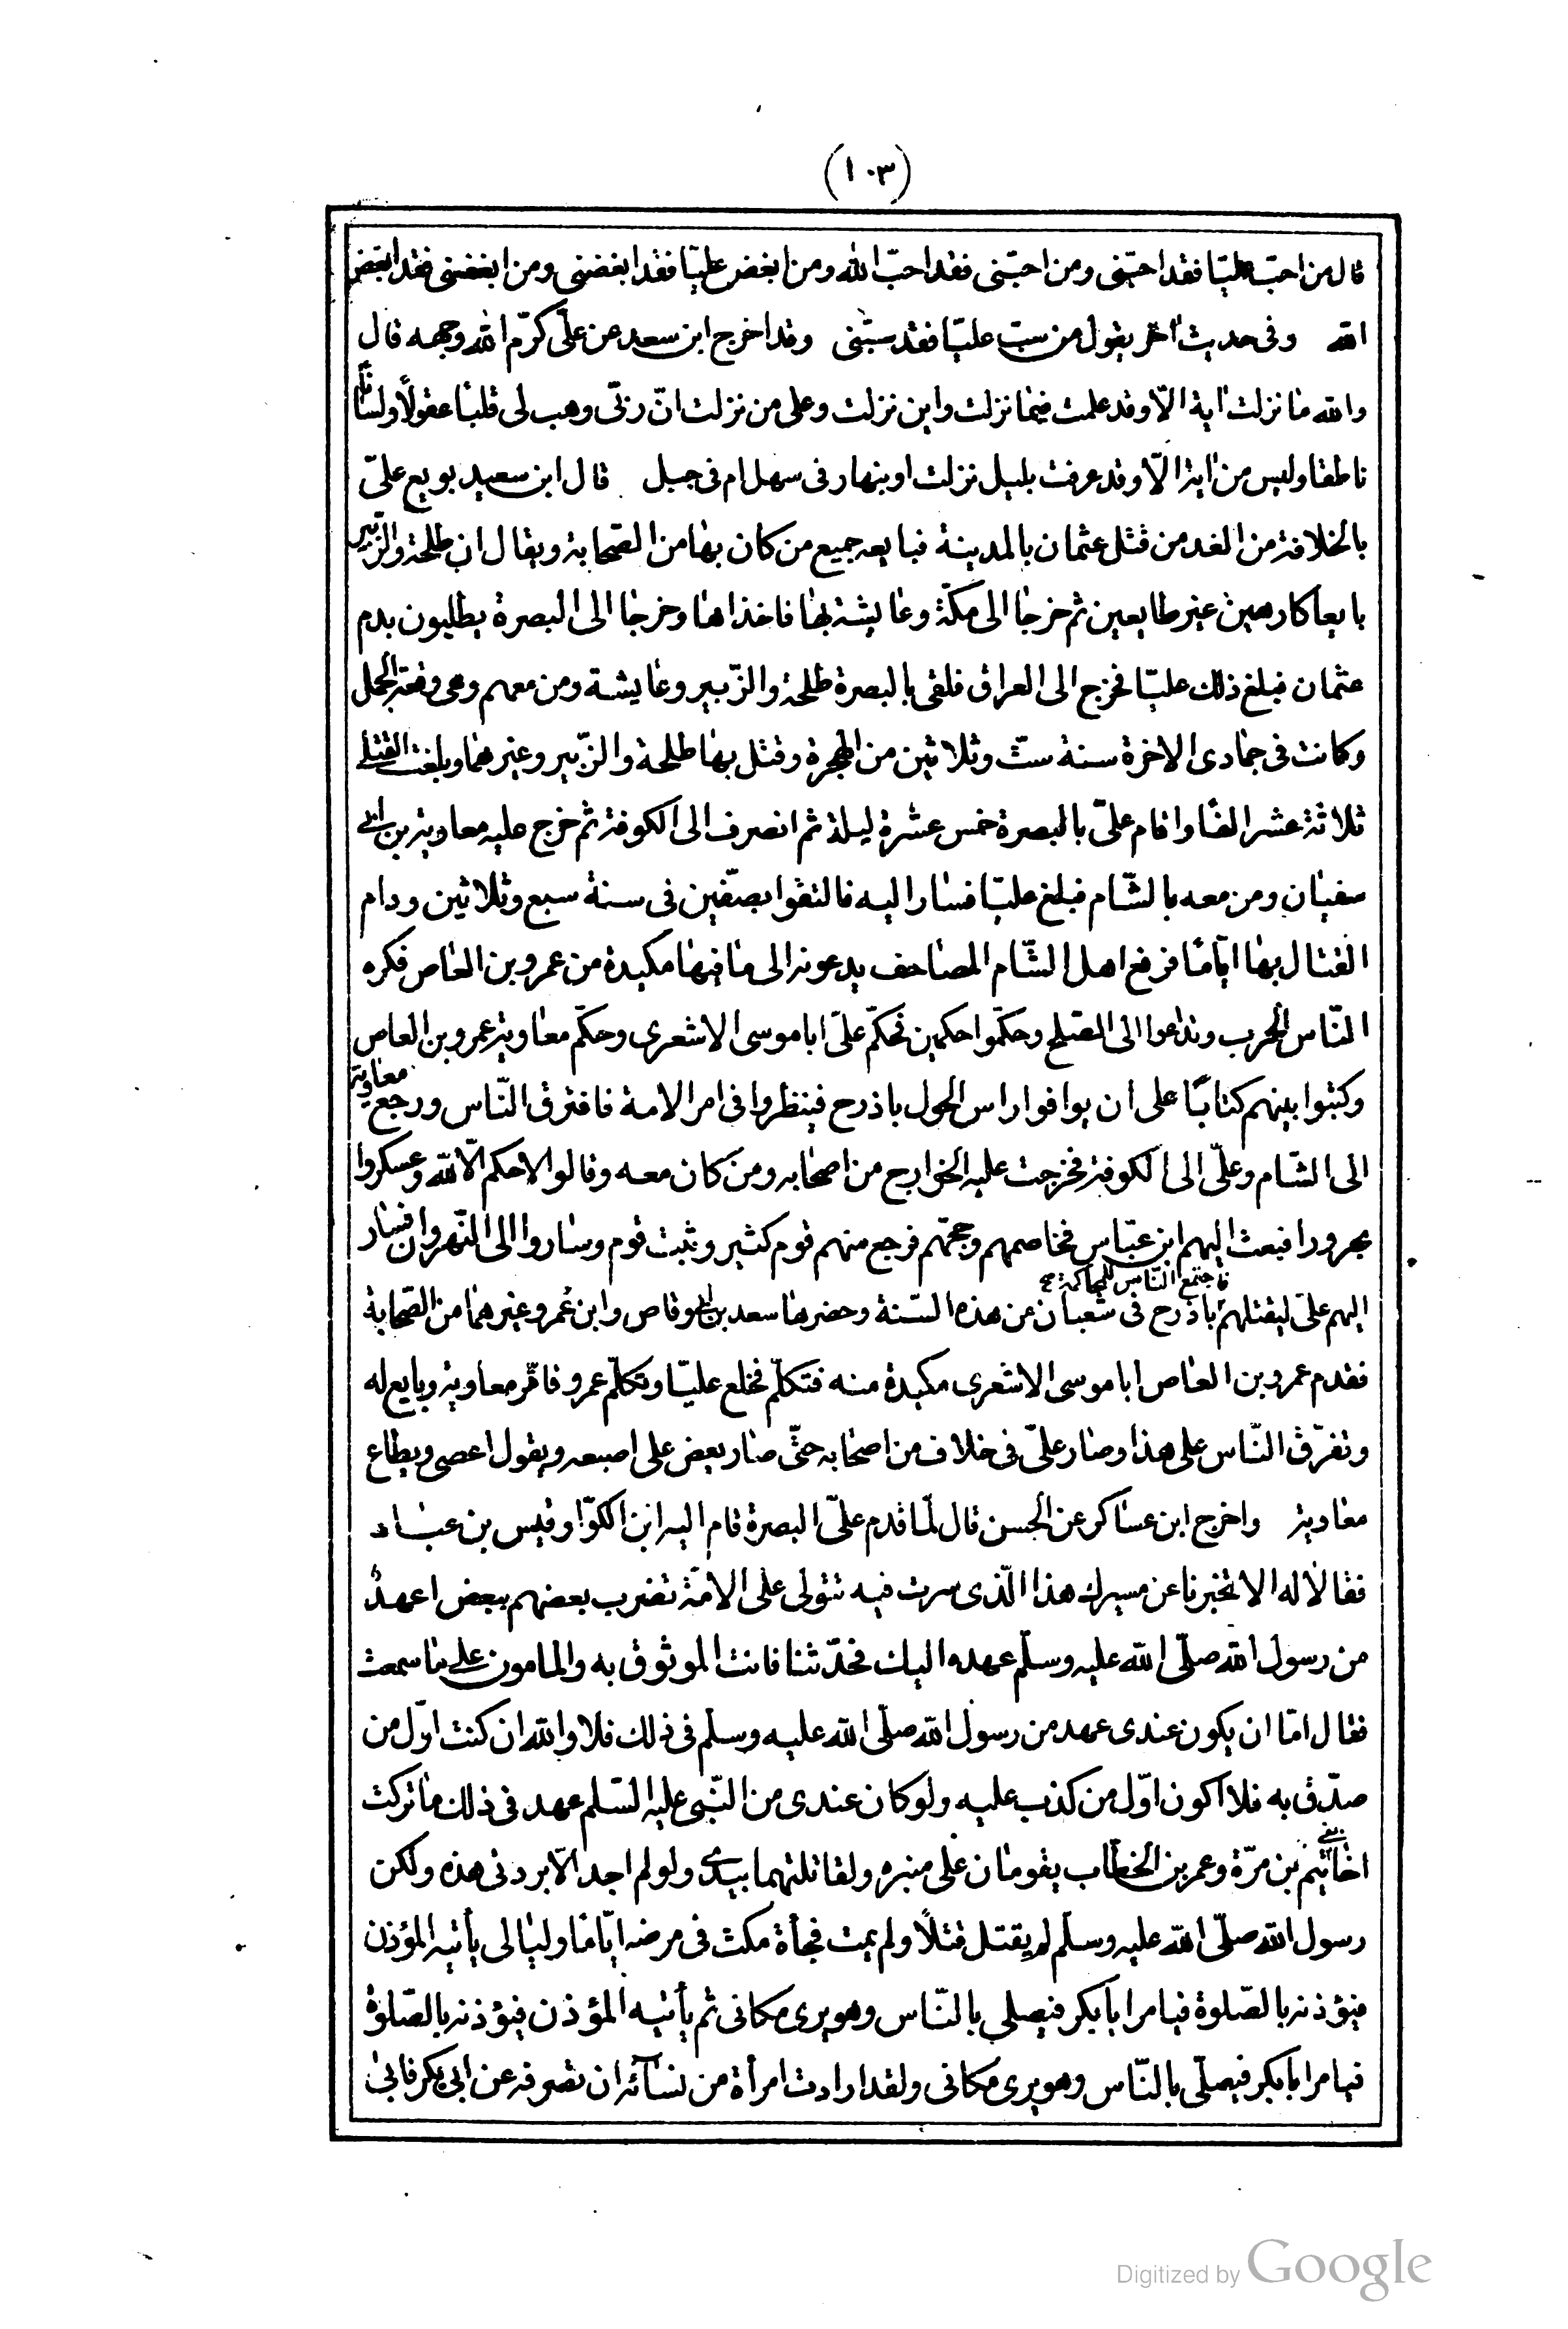 (١٠٣)
قال من احبّ عليّا فقد احبّنى ومن احبّنى فقد احبّ الله ومن ابغض عليّا فقد ابغضنى ومن ابغضنى فقد ابغض
الله وفى حديث اٰخر يقول من سبّ عليّا فقد سبّنى وقد اخرج ابن سعد عن علىّ كرّم الله وجهه قال
والله ما نزلت اٰية الّا وقد علمت فيما نزلت واين نزلت وعلى من نزلت انّ ربّى وهب لى قلبًا عقولًا ولسانًا
ناطقا وليس من اٰية الّا وقد عرفت بليل نزلت او بنهار فى سهل ام فى جبل قال ابن سعيد بويع علىّ
بالخلافة من الغد من قتل عثمان بالمدينة فبايعه جميع من كان بها من الصّحابة ويقال ان طلحة والزّبير
بايعا كارهين غير طايعين ثم خرجا الى مكّة وعايشة بها فاخذاها وخرجا الى البصرة يطلبون بدم
عثمان فبلغ ذلك عليّا فخرج الى العراق فلقى بالبصرة طلحة والزّبير وعايشة ومن معهم وهى وقعة الجمل
وكانت فى جمادى الاخرة سنة ستّ وثلاثين من الهجرة وقتل بها طلحة والزّبير وغيرهما وبلغت القتلى
ثلاثة عشر الفًا واقام علىّ بالبصرة خمس عشرة ليلة ثم انصرف الى الكوفة ثم خرج عليه معاوية بن ابى
سفيان ومن معه بالشّام فبلغ عليّا فسار اليه فالتقوا بصفّين فى سنة سبع وثلاثين ودام
القتال بها ايّامًا فرفع اهل الشّام المصاحف يدعونه الى ما فيها مكيدة من عمرو بن العاص فكره
النّاس الحرب وتداعوا الى الصّلح وحكّموا حكمين فحكّم علىّ ابا موسى الاشعرى وحكّم معاوية عمرو بن العاص
وكتبوا بينهم كتابًا على ان يوافوا راس الحول باذرح فينظروا فى امر الامة فافترق النّاس ورجع معاوية
الى الشّام وعلىّ الى الكوفة فخرجت عليه الخوارج من اصحابه ومن كان معه وقالوا لا حكم الّا لله وعسكروا
بحرورا فبعث اليهم ابن عبّاس فخاصمهم وحجّهم فرجع منهم قوم كثير وثبت قوم وساروا الى النّهروان فسار
فاجتمع النّاس للمحاكمة صح
اليهم علىّ ليقتلهم باذرح فى شعبان من هذه السّنة وحضرها سعد بن ابى وقاص وابن عُمر وغيرهما من الصّحابة
فقدم عمرو بن العاص ابا موسى الاشعرى مكيدة منه فتكلّم فخلع عليّا وتكلّم عمرو فاقرّ معاوية وبايع له
وتفرّق النّاس على هذا وصار علىّ فى خلاف من اصحابه حتّى صار يعض على اصبعه ويقول اعصى ويطاع
معاوية واخرج ابن عساكر عن الحسن قال لمّا قدم علىّ البصرة قام اليه ابن الكوّا وقيس بن عباد
فقالا له الا تخبرنا عن مسيرك هذا الّذى سرت فيه تتولى على الامّة تضرب بعضهم ببعض اعهدٌ
من رسول الله صلّى الله عليه وسلّم عهده اليك فحدّثنا فانت الموثوق به والمامون على ما سمعت
فقال امّا ان يكون عندى عهد من رسول الله صلّى الله عليه وسلّم فى ذلك فلا والله ان كنت اوّل من
صدّق به فلا اكون اوّل من كذب عليه ولو كان عندى من النّبى عليه السّلم عهد فى ذلك ما تركت
اخا بنى تيم بن مرّة وعمر بن الخطّاب يقومان على منبره ولقاتلتهما بيدى ولو لم اجد الّا بردتى هذه ولكن
رسول الله صلّى الله عليه وسلّم لم يقتل قتلًا ولم يمت فجأة مكث فى مرضه ايّامًا وليالى يأتيه المؤذن
فيؤذنه بالصّلوة فيامر ابا بكر فيصلى بالنّاس وهو يرى مكانى ثم يأتيه المؤذن فيؤذنه بالصّلوة
فيامر ابا بكر فيصلّى بالنّاس وهو يرى مكانى ولقد ارادت امرأة من نسآئه ان تصرفه عن ابى بكر فابى
Digitized by Google